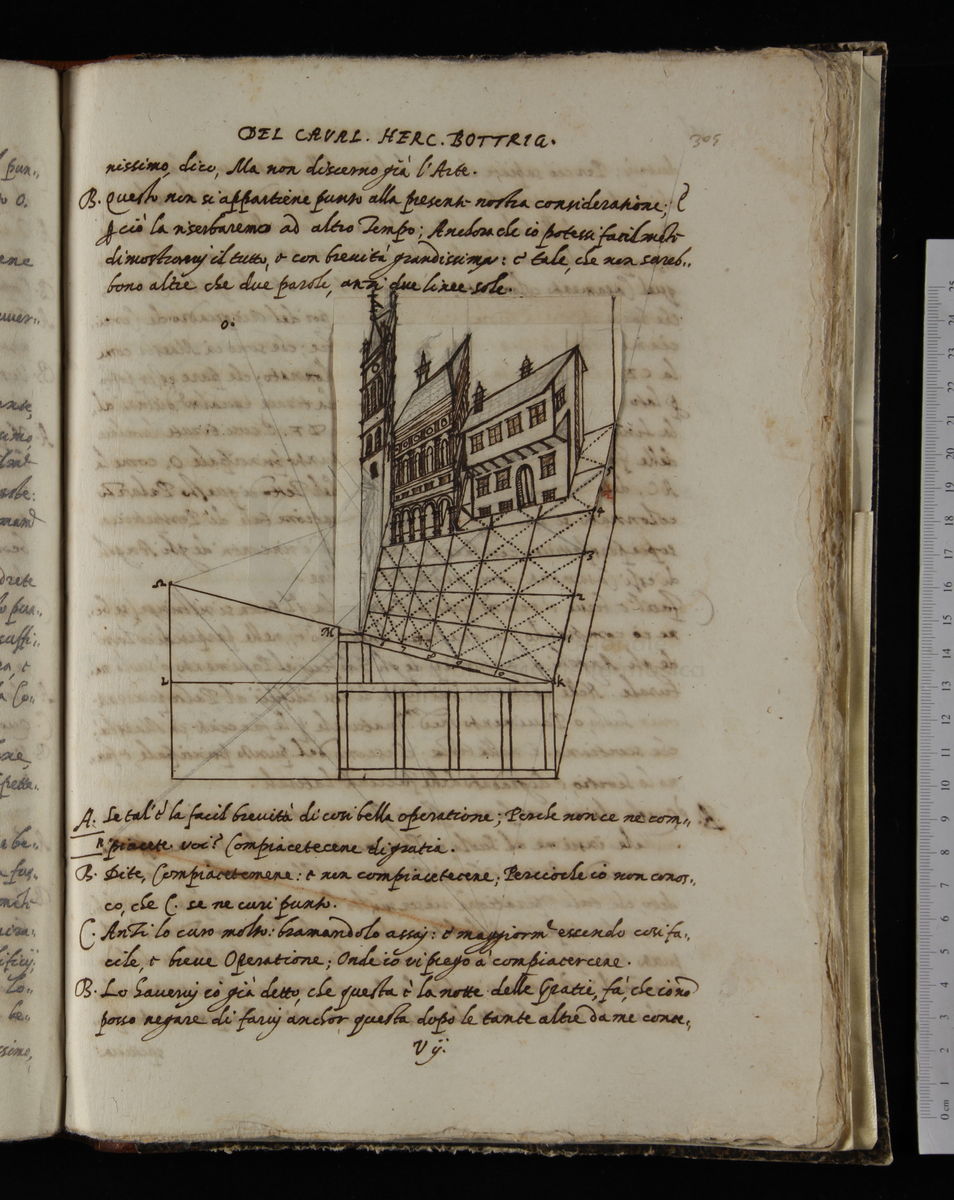 DEL CAVAL. HERC. BOTTRIG.
305
nissimo, dico, Ma non discerno già l'Arte.
B. Questo non si appartiene punto alla present nostra consideratione;
ciò la riserbaremo ad altro Tempo; Anchora che io potessi facilmēte
dimostrarvj il tutto, et con brevità grandissima: è tale, che non sareb,,
bono altre che due parole, anzi due linee sole.
o.
Ω
M
L
K
1
2
3
4
5
6
7
8
9
10
A. Se tal' è la facil brevità di così bella operatione; Perche non ce ne com,,
piacete voi? Compiacetecene di gratia.
B. Dite, Compiacetemene: et non compiacetecene; Percioche io non conos,,
co, che C. se ne curi punto.
C. Anzi lo curo molto: bramandolo assaj: et maggiormᵉ essendo così fa,,
cile, et breve Operatione; Onde io vi prego à compiacercene.
B. Lo havervj io già detto, che questa è la notte delle Gratie, fà, che io nō
posso negare di farvj anchor questa dopo le tante altre da me conce,,
V ij.